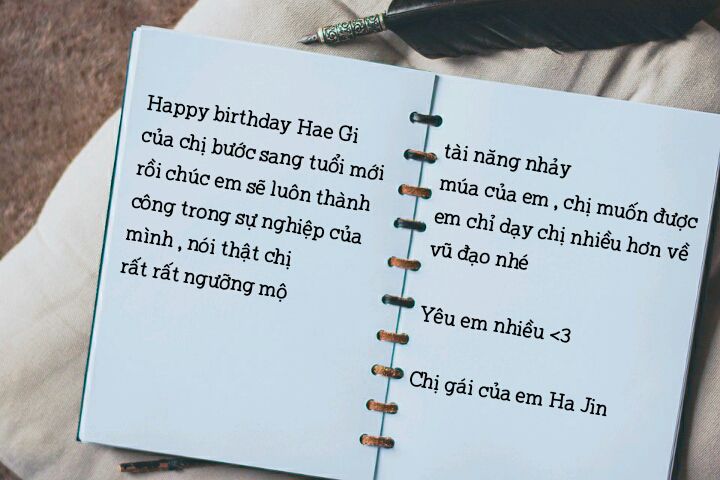 Happy birthday Hae Gi
của chị bước sang tuổi mới
rồi chúc em sẽ luôn thành
công trong sự nghiệp của
mình , nói thật chị
rất rất ngưỡng mộ
tài năng nhảy
múa của em , chị muốn được
em chỉ dạy chị nhiều hơn về
vũ đạo nhé
Yêu em nhiều <3
Chị gái của em Ha Jin